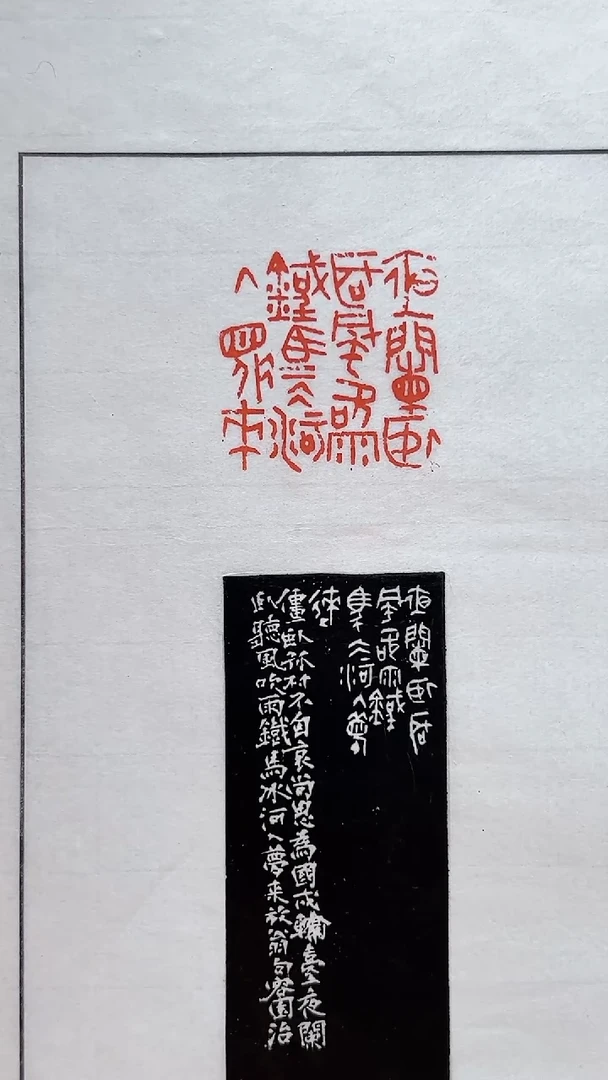 夜闌臥
聽風吹雨
鐵馬冰河
入夢來
夜闌臥聽
風吹雨鐵
馬冰河入夢
來
僵臥孤村不自哀尚思為國戍輪臺夜闌
臥聽風吹雨鐵馬冰河入夢來放翁句園治